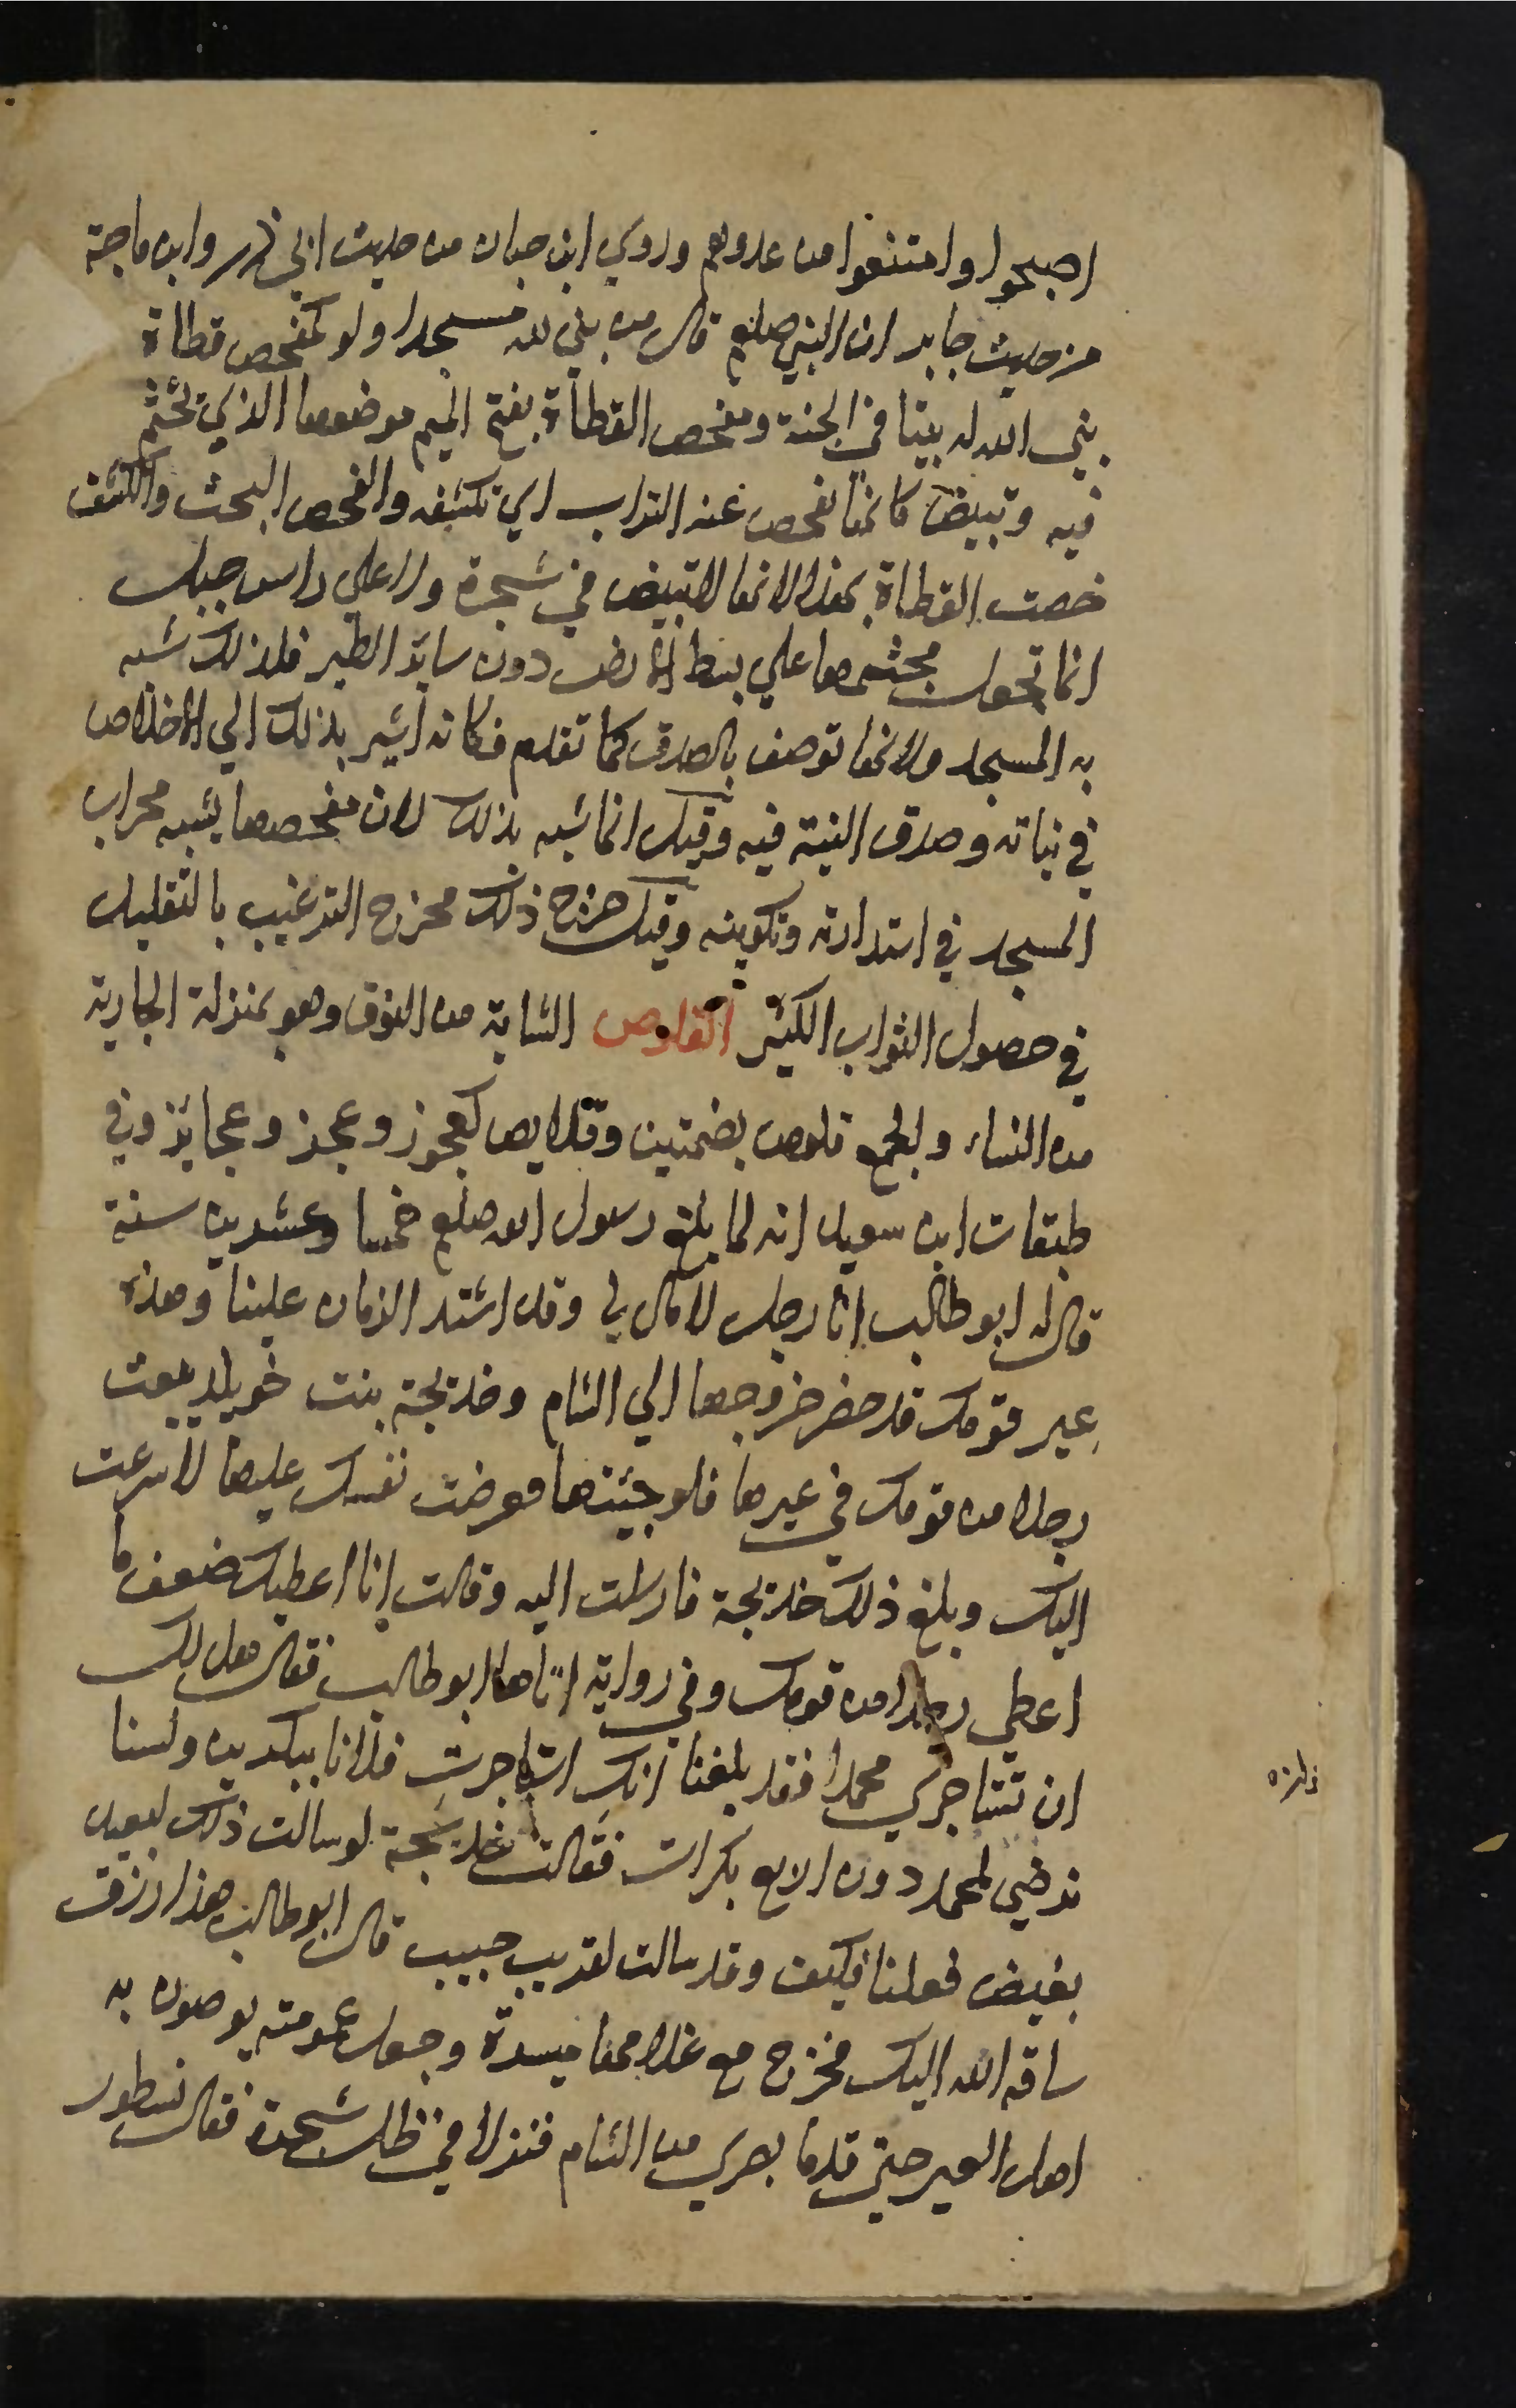 اصبحوا وامتنعوا من عدوهم وروي ابن حبان من حديث ابي ذر وابن ماجة
من حديث جابر ان النبي صلعم قال من بني لله مسجدا ولو كمفحص قطاة
بني الله له بيتا في الجنة ومفحص القطاة بفتح الميم موضعها الذي تجثم
فيه وتبيض كانها تفحص عنه التراب اي تكشفه والفحص البحث والكشف
خصت القطاة بهذا لانها لا تبيض في شجرة ولا علي راس جبل
انما تجعل مجثمها علي بسط الارض دون سائر الطير فلذلك شبه
به المسجد ولانها توصف بالصدق كما تقدم فكانه اشير بذلك الي الاخلاص
في بنائه وصدق النية فيه وقيل انما شبه بذلك لان مفحصها يشبه محراب
المسجد في استدارته وتكوينه وقيل خرج ذلك مخرج الترغيب بالتقليل
في حصول الثواب الكثير القلوص الشابة من النوق وهو بمنزلة الجارية
من النساء والجمع قلوص بضمتين وقلايص كعجوز وعجز وعجايز وفي
طبقات ابن سعيد انه لما بلغ رسول الله صلعم خمسا وعشرين سنة
قال له ابو طالب انا رجل لا مال لي وقد اشتد الزمان علينا وهذه
عير قومك قد حضر خروجها الي الشام وخديجة بنت خويلد تبعث
رجلا من قومك في عيرها فلو جئتها فعرضت نفسك عليها لاسرعت
اليك وبلغ ذلك خديجة فارسلت اليه وقالت انا اعطيك ضعف ما
اعطي رجلا من قومك وفي رواية اتاها ابو طالب فقال هل لك
ان تستاجري محمدا فقد بلغنا انك استاجرت فلانا ببكرين ولسنا
نرضي لمحمد دون اربع بكرات فقالت خديجة لو سالت ذلك لبعيد
بغيض فعلنا فكيف وقد سالت لقريب حبيب قال ابو طالب هذا رزق
ساقه الله اليك فخرج مع غلامها ميسرة وجعل عمومته يوصون به
اهل العير حتي قدما بصري من الشام فنزلا في ظل شجرة فقال نسطور